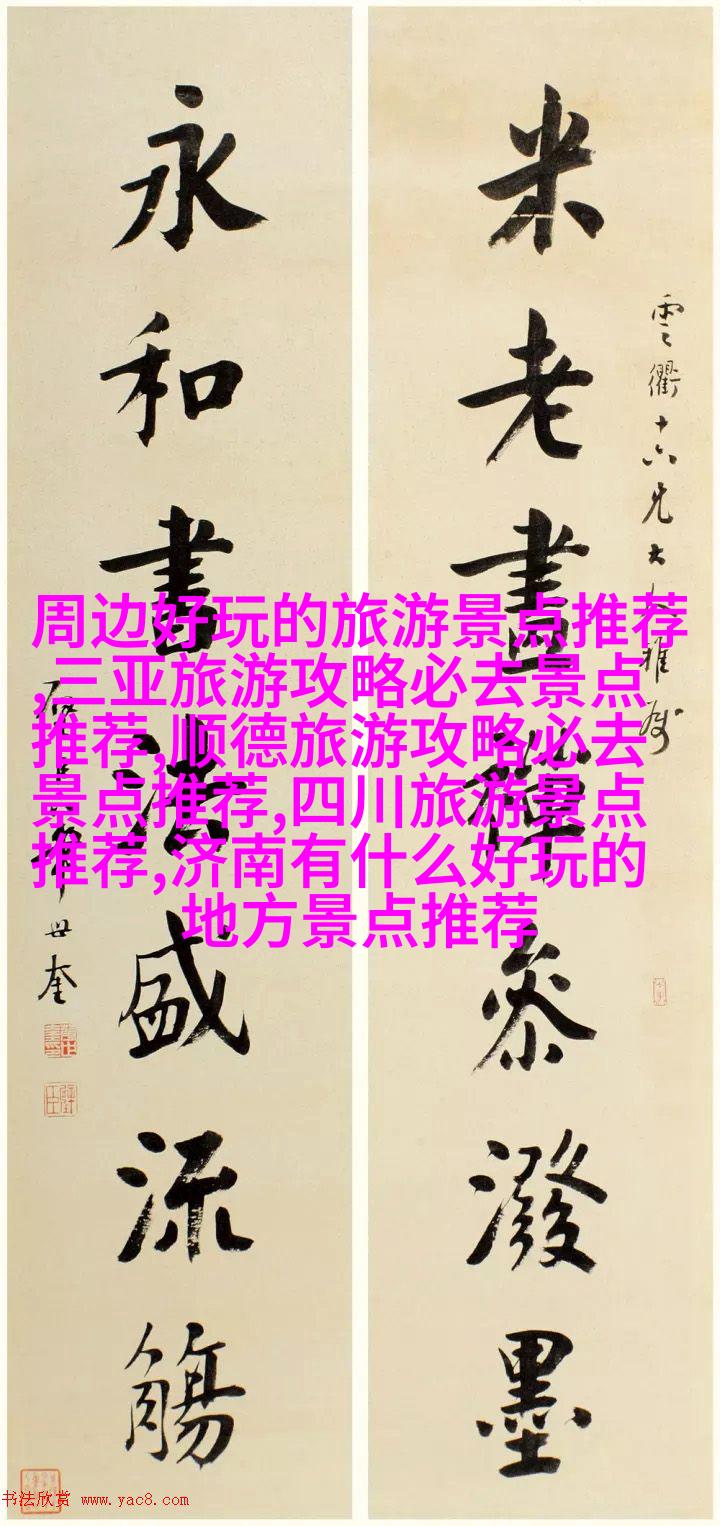 米老畫禪參潑墨
雲衢十六兄大人雅屬
永和書法盛流觴
華世奎
周边好玩的旅游景点推荐
,三亚旅游攻略必去景点
推荐,顺德旅游攻略必去
景点推荐,四川旅游景点
推荐,济南有什么好玩的
地方景点推荐
书法欣赏 www.yac8.com